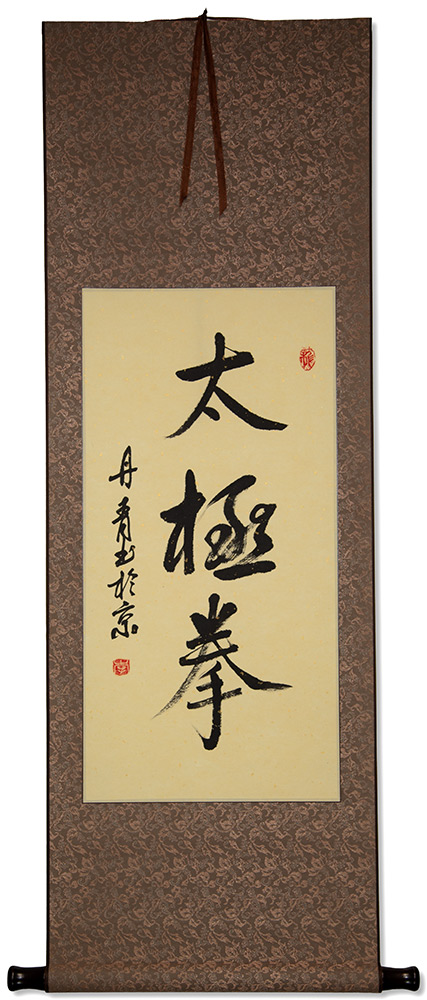 太極拳
丹青书於京